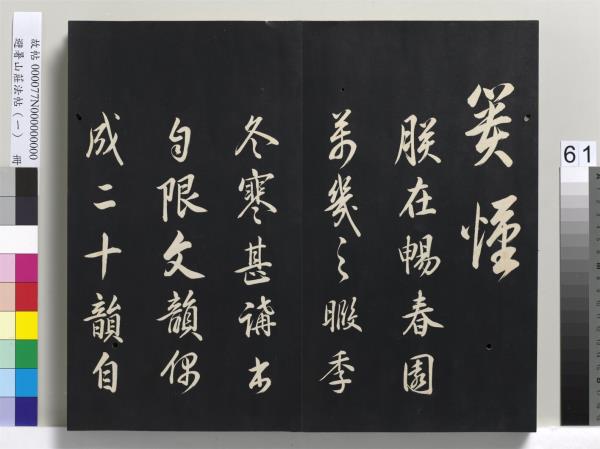 朕在暢春園
萬幾之暇季
冬寒甚講
限文韻偶
成二十韻自
故帖 000077N000000000
避暑山莊法帖（一） 冊
61